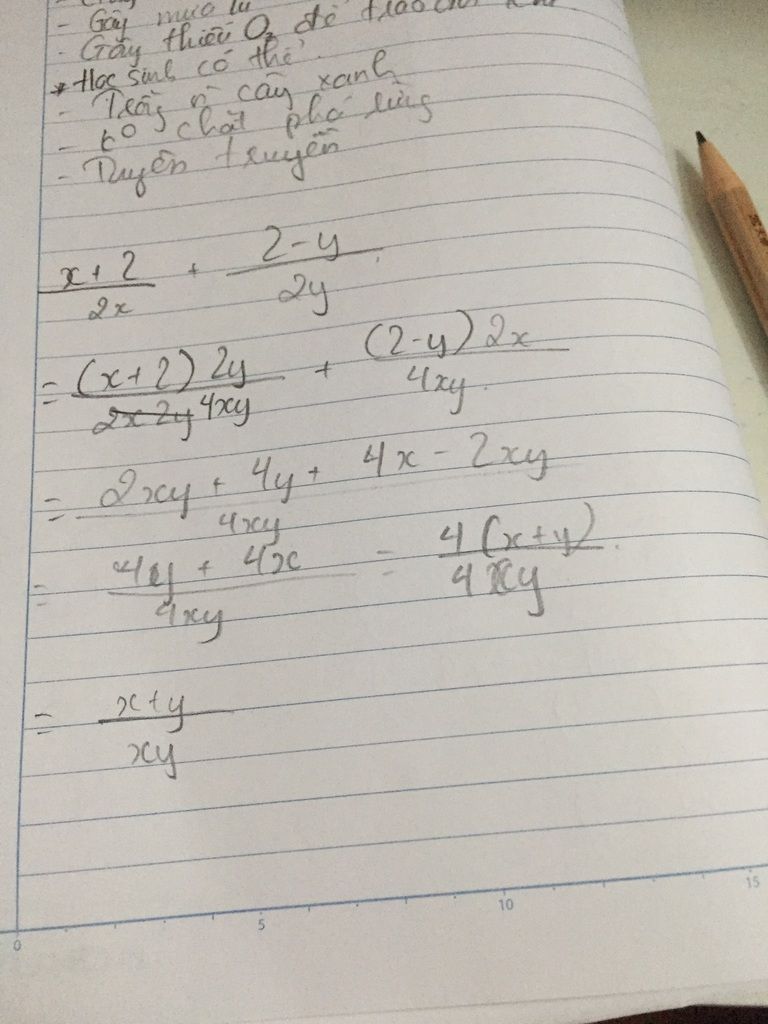 - Gây mưa lũ
- Gây thiếu O₂ để trao đổi khí
* Học sinh có thể
- Trồng n̄ cây xanh
- ko chặt phá rừng
- Tuyên truyền
(x+2)/(2x) + (2-y)/(2y)
= ((x+2)2y)/(4xy) + ((2-y)2x)/(4xy)
= (2xy + 4y + 4x - 2xy)/(4xy)
= (4y + 4x)/(4xy) = (4(x+y))/(4xy)
= (x+y)/(xy)
0 5 10 15